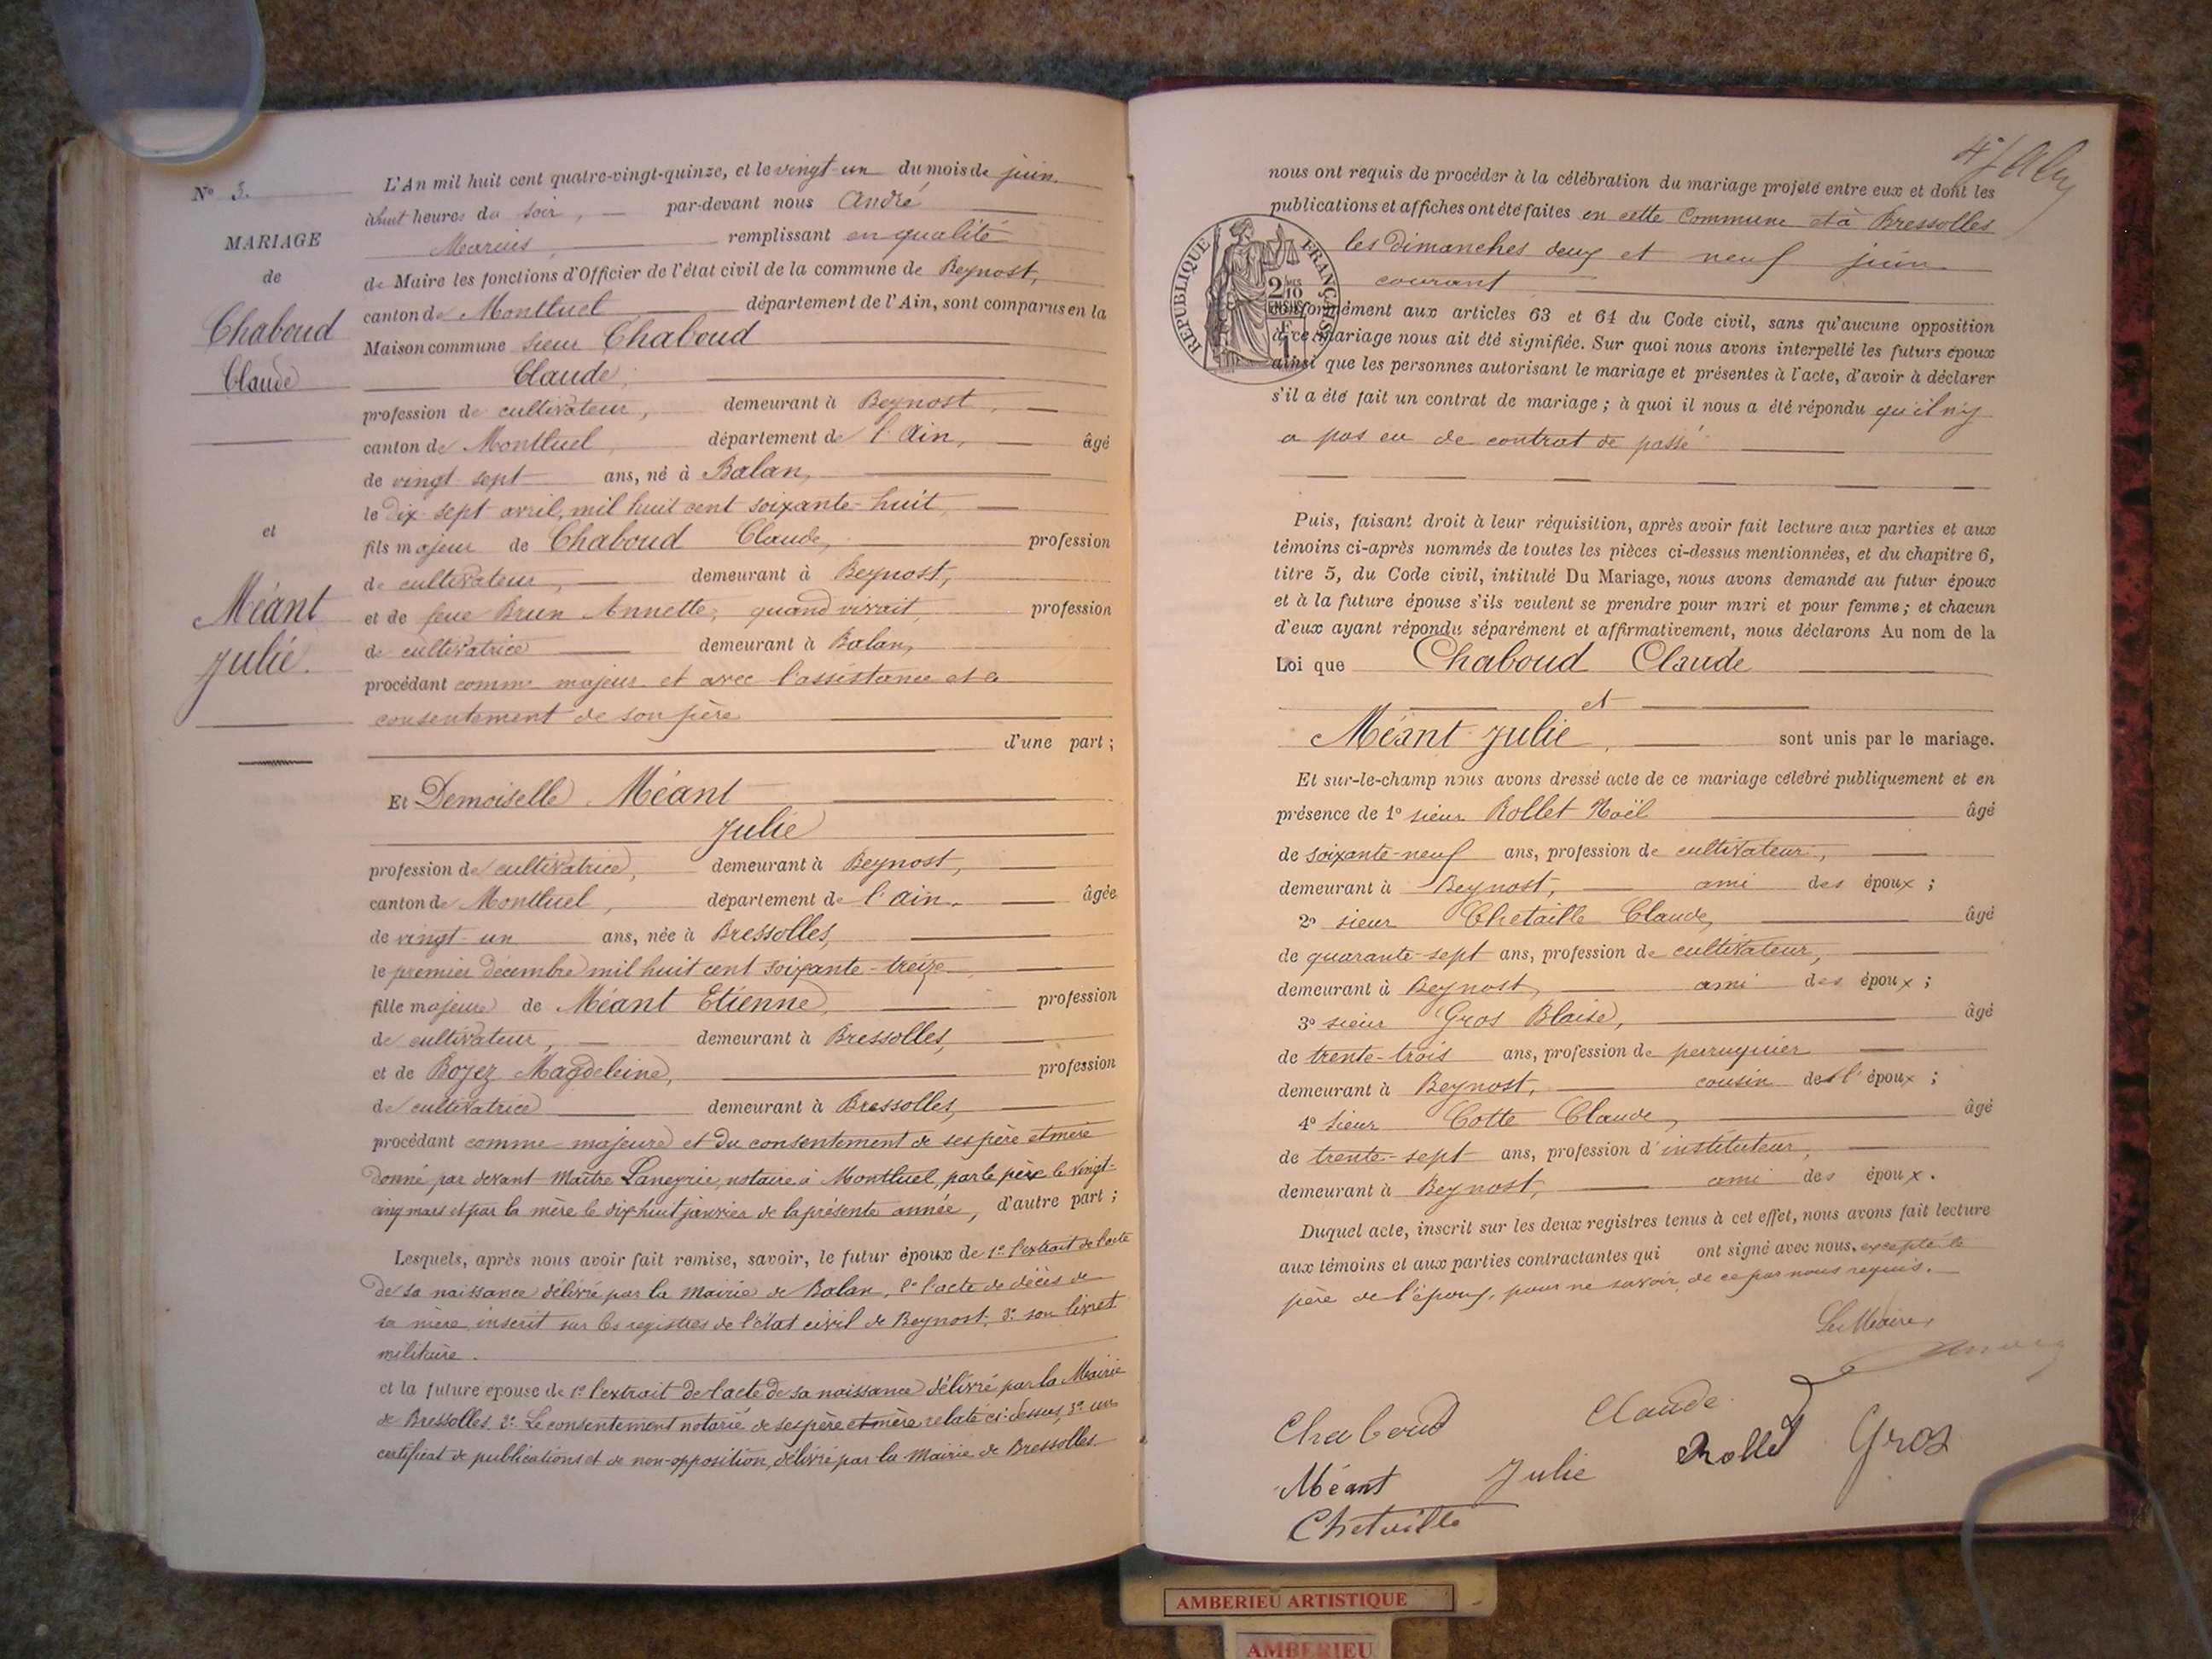 N° 3.
MARIAGE
de
Chaboud
Claude
et
Méant
Julie.
L'An mil huit cent quatre-vingt-quinze, et le vingt-un du mois de juin
à huit heures du soir, par-devant nous André
Marius, remplissant en qualité
de Maire les fonctions d'Officier de l'état civil de la commune de Beynost,
canton de Montluel département de l'Ain, sont comparus en la
Maison commune sieur Chaboud
Claude,
profession de cultivateur, demeurant à Beynost,
canton de Montluel, département de l'Ain, âgé
de vingt-sept ans, né à Balan,
le dix-sept avril, mil huit cent soixante-huit,
fils majeur de Chaboud Claude, profession
de cultivateur, demeurant à Beynost,
et de feue Brun Annette, quand vivait, profession
de cultivatrice demeurant à Balan,
procédant comme majeur et avec l'assistance et le
consentement de son père
d'une part;
Et Demoiselle Méant
Julie
profession de cultivatrice, demeurant à Beynost,
canton de Montluel, département de l'Ain, âgée
de vingt-un ans, née à Bressolles,
le premier décembre mil huit cent soixante-treize,
fille majeure de Méant Etienne, profession
de cultivateur, demeurant à Bressolles,
et de Boyez Magdeleine, profession
de cultivatrice demeurant à Bressolles,
procédant comme majeure et du consentement de ses père et mère
donné par devant Maître Laneyrie, notaire à Montluel, par le père le vingt-
cinq mars et par la mère le dix-huit janvier de la présente année, d'autre part;
Lesquels, après nous avoir fait remise, savoir, le futur époux de 1° l'extrait de l'acte
de sa naissance délivré par la mairie de Balan, 2° l'acte de décès de
sa mère, inscrit sur les registres de l'état civil de Beynost, 3° son livret
militaire.
et la future épouse de 1° l'extrait de l'acte de sa naissance délivré par la Mairie
de Bressolles, 2° Le consentement notarié de ses père et mère relaté ci-dessus, 3° un
certificat de publications et de non-opposition, délivré par la Mairie de Bressolles
nous ont requis de procéder à la célébration du mariage projeté entre eux et dont les
publications et affiches ont été faites en cette Commune et à Bressolles
les dimanches deux et neuf juin
courant
RÉPUBLIQUE FRANÇAISE
2/10
EN SUS
1F
conformément aux articles 63 et 64 du Code civil, sans qu'aucune opposition
à ce mariage nous ait été signifiée. Sur quoi nous avons interpellé les futurs époux
ainsi que les personnes autorisant le mariage et présentes à l'acte, d'avoir à déclarer
s'il a été fait un contrat de mariage; à quoi il nous a été répondu qu'il n'y
a pas eu de contrat de passé
Puis, faisant droit à leur réquisition, après avoir fait lecture aux parties et aux
témoins ci-après nommés de toutes les pièces ci-dessus mentionnées, et du chapitre 6,
titre 5, du Code civil, intitulé Du Mariage, nous avons demandé au futur époux
et à la future épouse s'ils veulent se prendre pour mari et pour femme; et chacun
d'eux ayant répondu séparément et affirmativement, nous déclarons Au nom de la
Loi que Chaboud Claude
et
Méant Julie, sont unis par le mariage.
Et sur-le-champ nous avons dressé acte de ce mariage célébré publiquement et en
présence de 1° sieur Rollet Noël âgé
de soixante-neuf ans, profession de cultivateur,
demeurant à Beynost, ami des époux;
2° sieur Chetaille Claude, âgé
de quarante-sept ans, profession de cultivateur,
demeurant à Beynost, ami des époux;
3° sieur Gros Blaise, âgé
de trente-trois ans, profession de perruquier
demeurant à Beynost, cousin de l'époux;
4° sieur Cotte Claude, âgé
de trente-sept ans, profession d'instituteur,
demeurant à Beynost, ami des époux.
Duquel acte, inscrit sur les deux registres tenus à cet effet, nous avons fait lecture
aux témoins et aux parties contractantes qui ont signé avec nous, excepté le
père de l'époux, pour ne savoir, de ce par nous requis.
Le Maire,
Chaboud Claude
Méant Julie Rollet Gros
Chetaille
AMBERIEU ARTISTIQUE
AMBERIEU